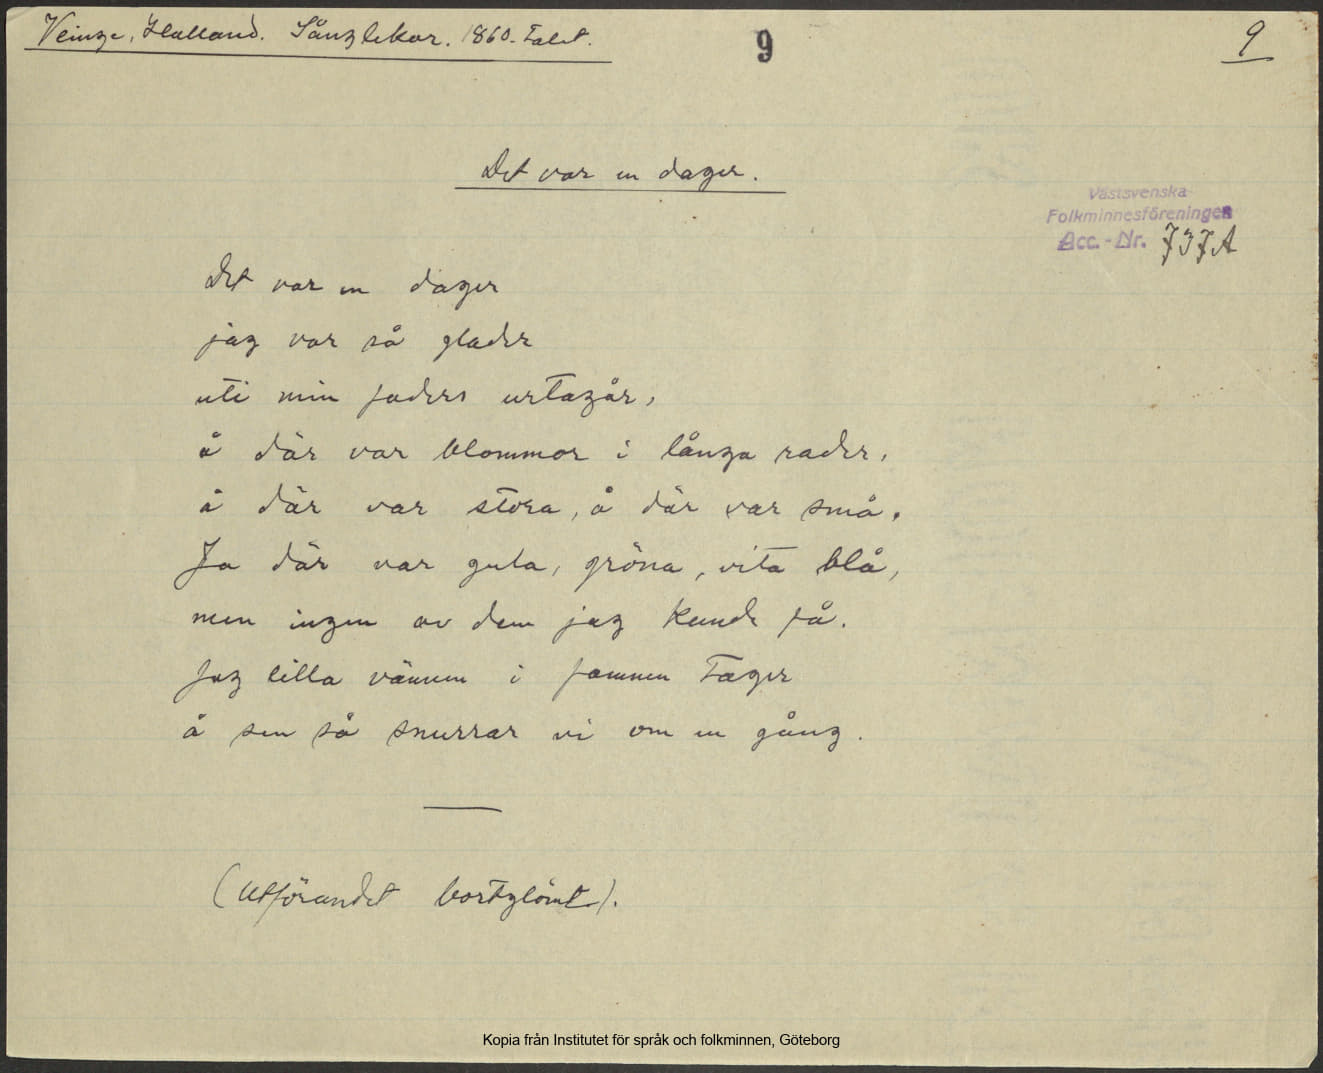 Veinge, Halland. Sånglekar. 1860-talet.
9
9
Det var en dager.
Västsvenska
Folkminnesföreningen
Acc.-Nr. 737A
Det var en dager
jag var så glader
uti min faders urtagår,
å där var blommor i långa rader,
å där var stora, å där var små.
Ja där var gula, gröna, vita blå,
men ingen av dem jag kunde få.
Jag lilla vännen i famnen tager
å sen så snurrar vi om en gång.
(Utförandet bortglömt).
Kopia från Institutet för språk och folkminnen, Göteborg